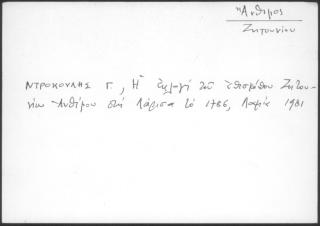 Ἄνθιμος
Ζητουνίου
ΝΤΡΟΚΟΥΛΗΣ Γ., Ἡ ἐκλογή τοῦ ἐπισκόπου Ζητου-
νίου Ἀνθίμου στή Λάρισα τό 1786, Λαμία 1981